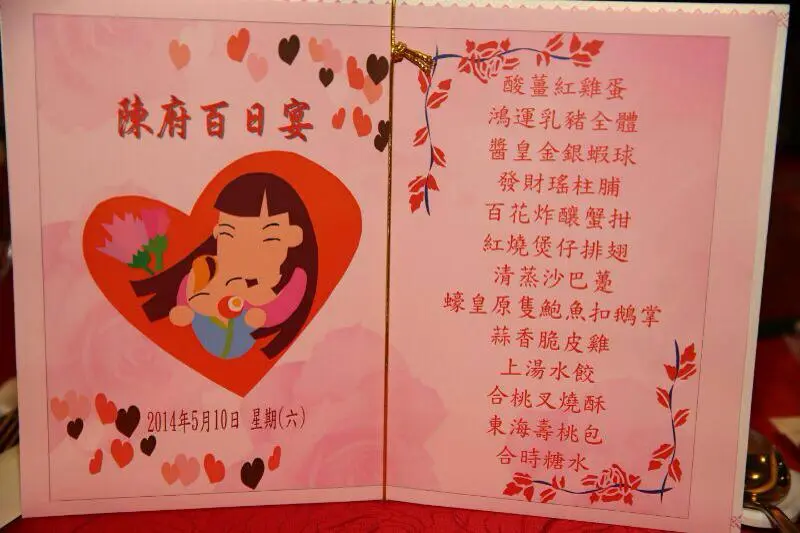 陳府百日宴
2014年5月10日 星期(六)
酸薑紅雞蛋
鴻運乳豬全體
醬皇金銀蝦球
發財瑤柱脯
百花炸釀蟹拑
紅燒煲仔排翅
清蒸沙巴躉
蠔皇原隻鮑魚扣鵝掌
蒜香脆皮雞
上湯水餃
合桃叉燒酥
東海壽桃包
合時糖水